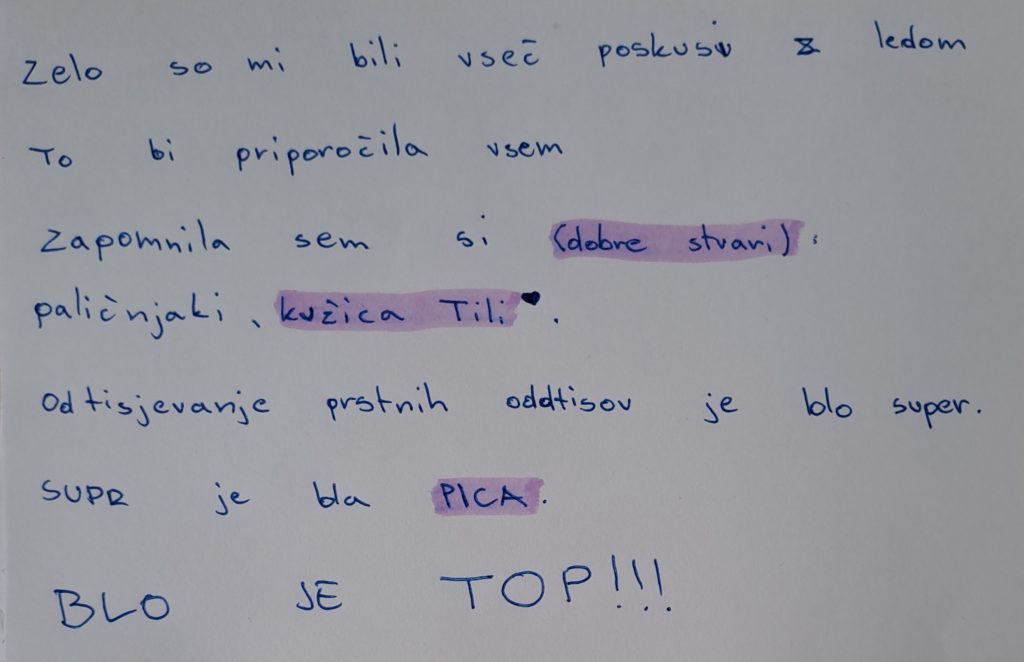 Zelo so mi bili všeč poskusi z ledom
To bi priporočila vsem
Zapomnila sem si (dobre stvari):
paličnjaki, kužica Tili ♥.
Odtisjevanje prstnih oddtisov je blo super.
SUPR je bla PICA.
BLO JE TOP!!!